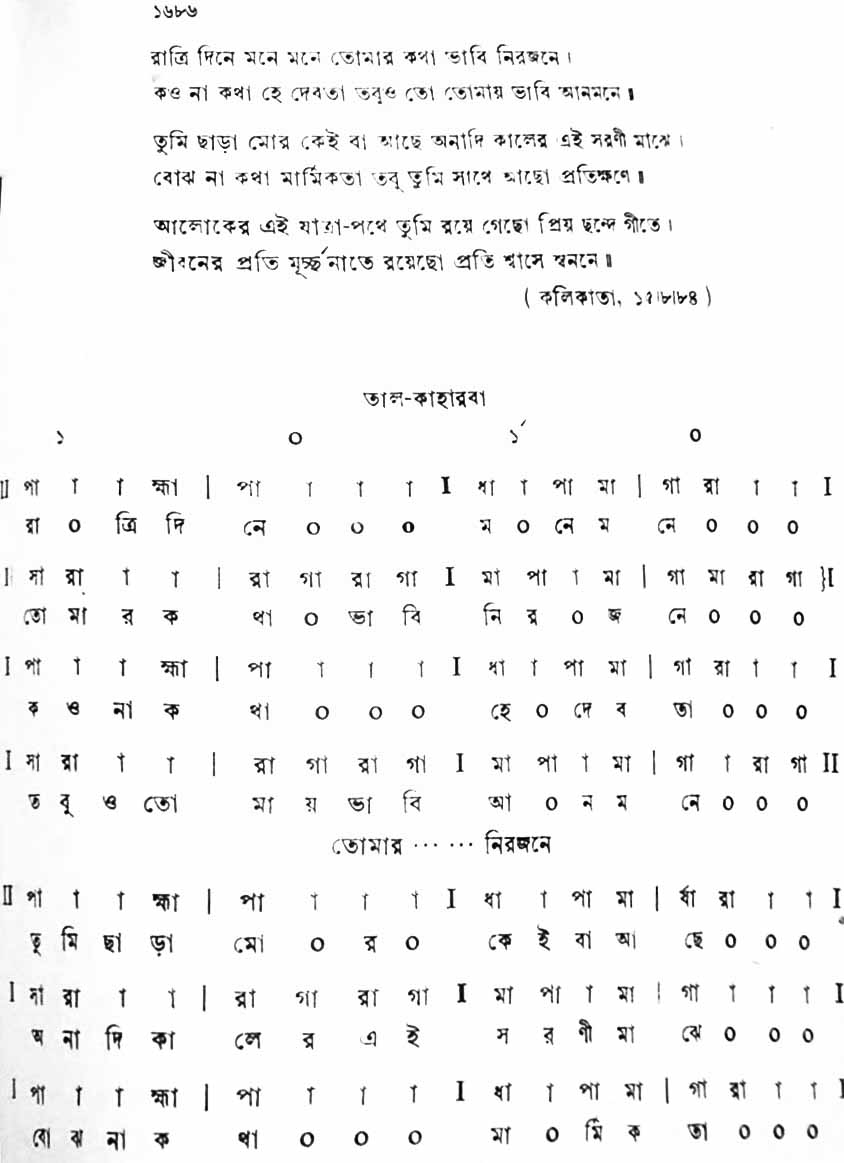 ১৬৮৬
রাত্রি দিনে মনে মনে তোমার কথা ভাবি নিরজনে।
কও না কথা হে দেবতা তবুও তো তোমায় ভাবি আনমনে॥
তুমি ছাড়া মোর কেই বা আছে অনাদি কালের এই সরণী মাঝে।
বোঝ না কথা মার্মিকতা তবু তুমি সাথে আছো প্রতিক্ষণে॥
আলোকের এই যাত্রা-পথে তুমি রয়ে গেছো প্রিয় ছন্দে গীতে।
জীবনের প্রতি মূর্চ্ছনাতে রয়েছো প্রতি শ্বাসে স্বননে॥
( কলিকাতা, ১৫।৮।৮৪ )
তাল-কাহারবা
১ ০ ১´ ০
II পা া া হ্মা | পা া া া I ধা া পা মা | গা রা া া I
রা ০ ত্রি দি নে ০ ০ ০ ম ০ নে ম নে ০ ০ ০
I সা রা া া | রা গা রা গা I মা পা া মা | গা মা রা গা }I
তো মা র ক থা ০ ভা বি নি র ০ জ নে ০ ০ ০
I পা া া হ্মা | পা া া া I ধা া পা মা | গা রা া া I
ক ও না ক থা ০ ০ ০ হে ০ দে ব তা ০ ০ ০
I সা রা া া | রা গা রা গা I মা পা া মা | গা া রা গা II
ত বু ও তো মা য় ভা বি আ ০ ন ম নে ০ ০ ০
তোমার ··· ··· নিরজনে
II পা া া হ্মা | পা া া া I ধা া পা মা | র্ধা রা া া I
তু মি ছা ড়া মো ০ র ০ কে ই বা আ ছে ০ ০ ০
I সা রা া া | রা গা রা গা I মা পা া মা | গা া া া I
অ না দি কা লে র এ ই স র ণী মা ঝে ০ ০ ০
I পা া া হ্মা | পা া া া I ধা া পা মা | গা রা া া I
বো ঝ না ক থা ০ ০ ০ মা ০ র্মি ক তা ০ ০ ০